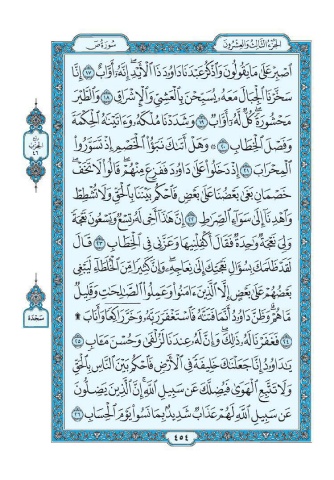 الجزء الثالث والعشرون
سورة ص
اصبر على ما يقولون واذكر عبدنا داوود ذا الأيد إنه أواب ١٧ إنا
سخرنا الجبال معه يسبحن بالعشي والإشراق ١٨ والطير
محشورة كل له أواب ١٩ وشددنا ملكه وءاتينه الحكمة
وفصل الخطاب ٢٠ وهل أتىك نبؤا الخصم إذ تسوروا
المحراب ٢١ إذ دخلوا على داوود ففزع منهم قالوا لا تخف
خصمان بغى بعضنا على بعض فاحكم بيننا بالحق ولا تشطط
واهدنا إلى سواء الصراط ٢٢ إن هذا أخي له تسع وتسعون نعجة
ولي نعجة وحدة فقال أكفلنيها وعزني في الخطاب ٢٣ قال
لقد ظلمك بسؤال نعجتك إلى نعاجه وإن كثيرا من الخلطاء ليبغي
بعضهم على بعض إلا الذين ءامنوا وعملوا الصلحت وقليل
ما هم وظن داوود أنما فتنه فاستغفر ربه وخر راكعا وأناب ۩
٢٤ فغفرنا له ذلك وإن له عندنا لزلفى وحسن مءاب ٢٥
يداوود إنا جعلنك خليفة في الأرض فاحكم بين الناس بالحق
ولا تتبع الهوى فيضلك عن سبيل الله إن الذين يضلون
عن سبيل الله لهم عذاب شديد بما نسوا يوم الحساب ٢٦
الحزب
٤٦
سجدة
٤٥٤